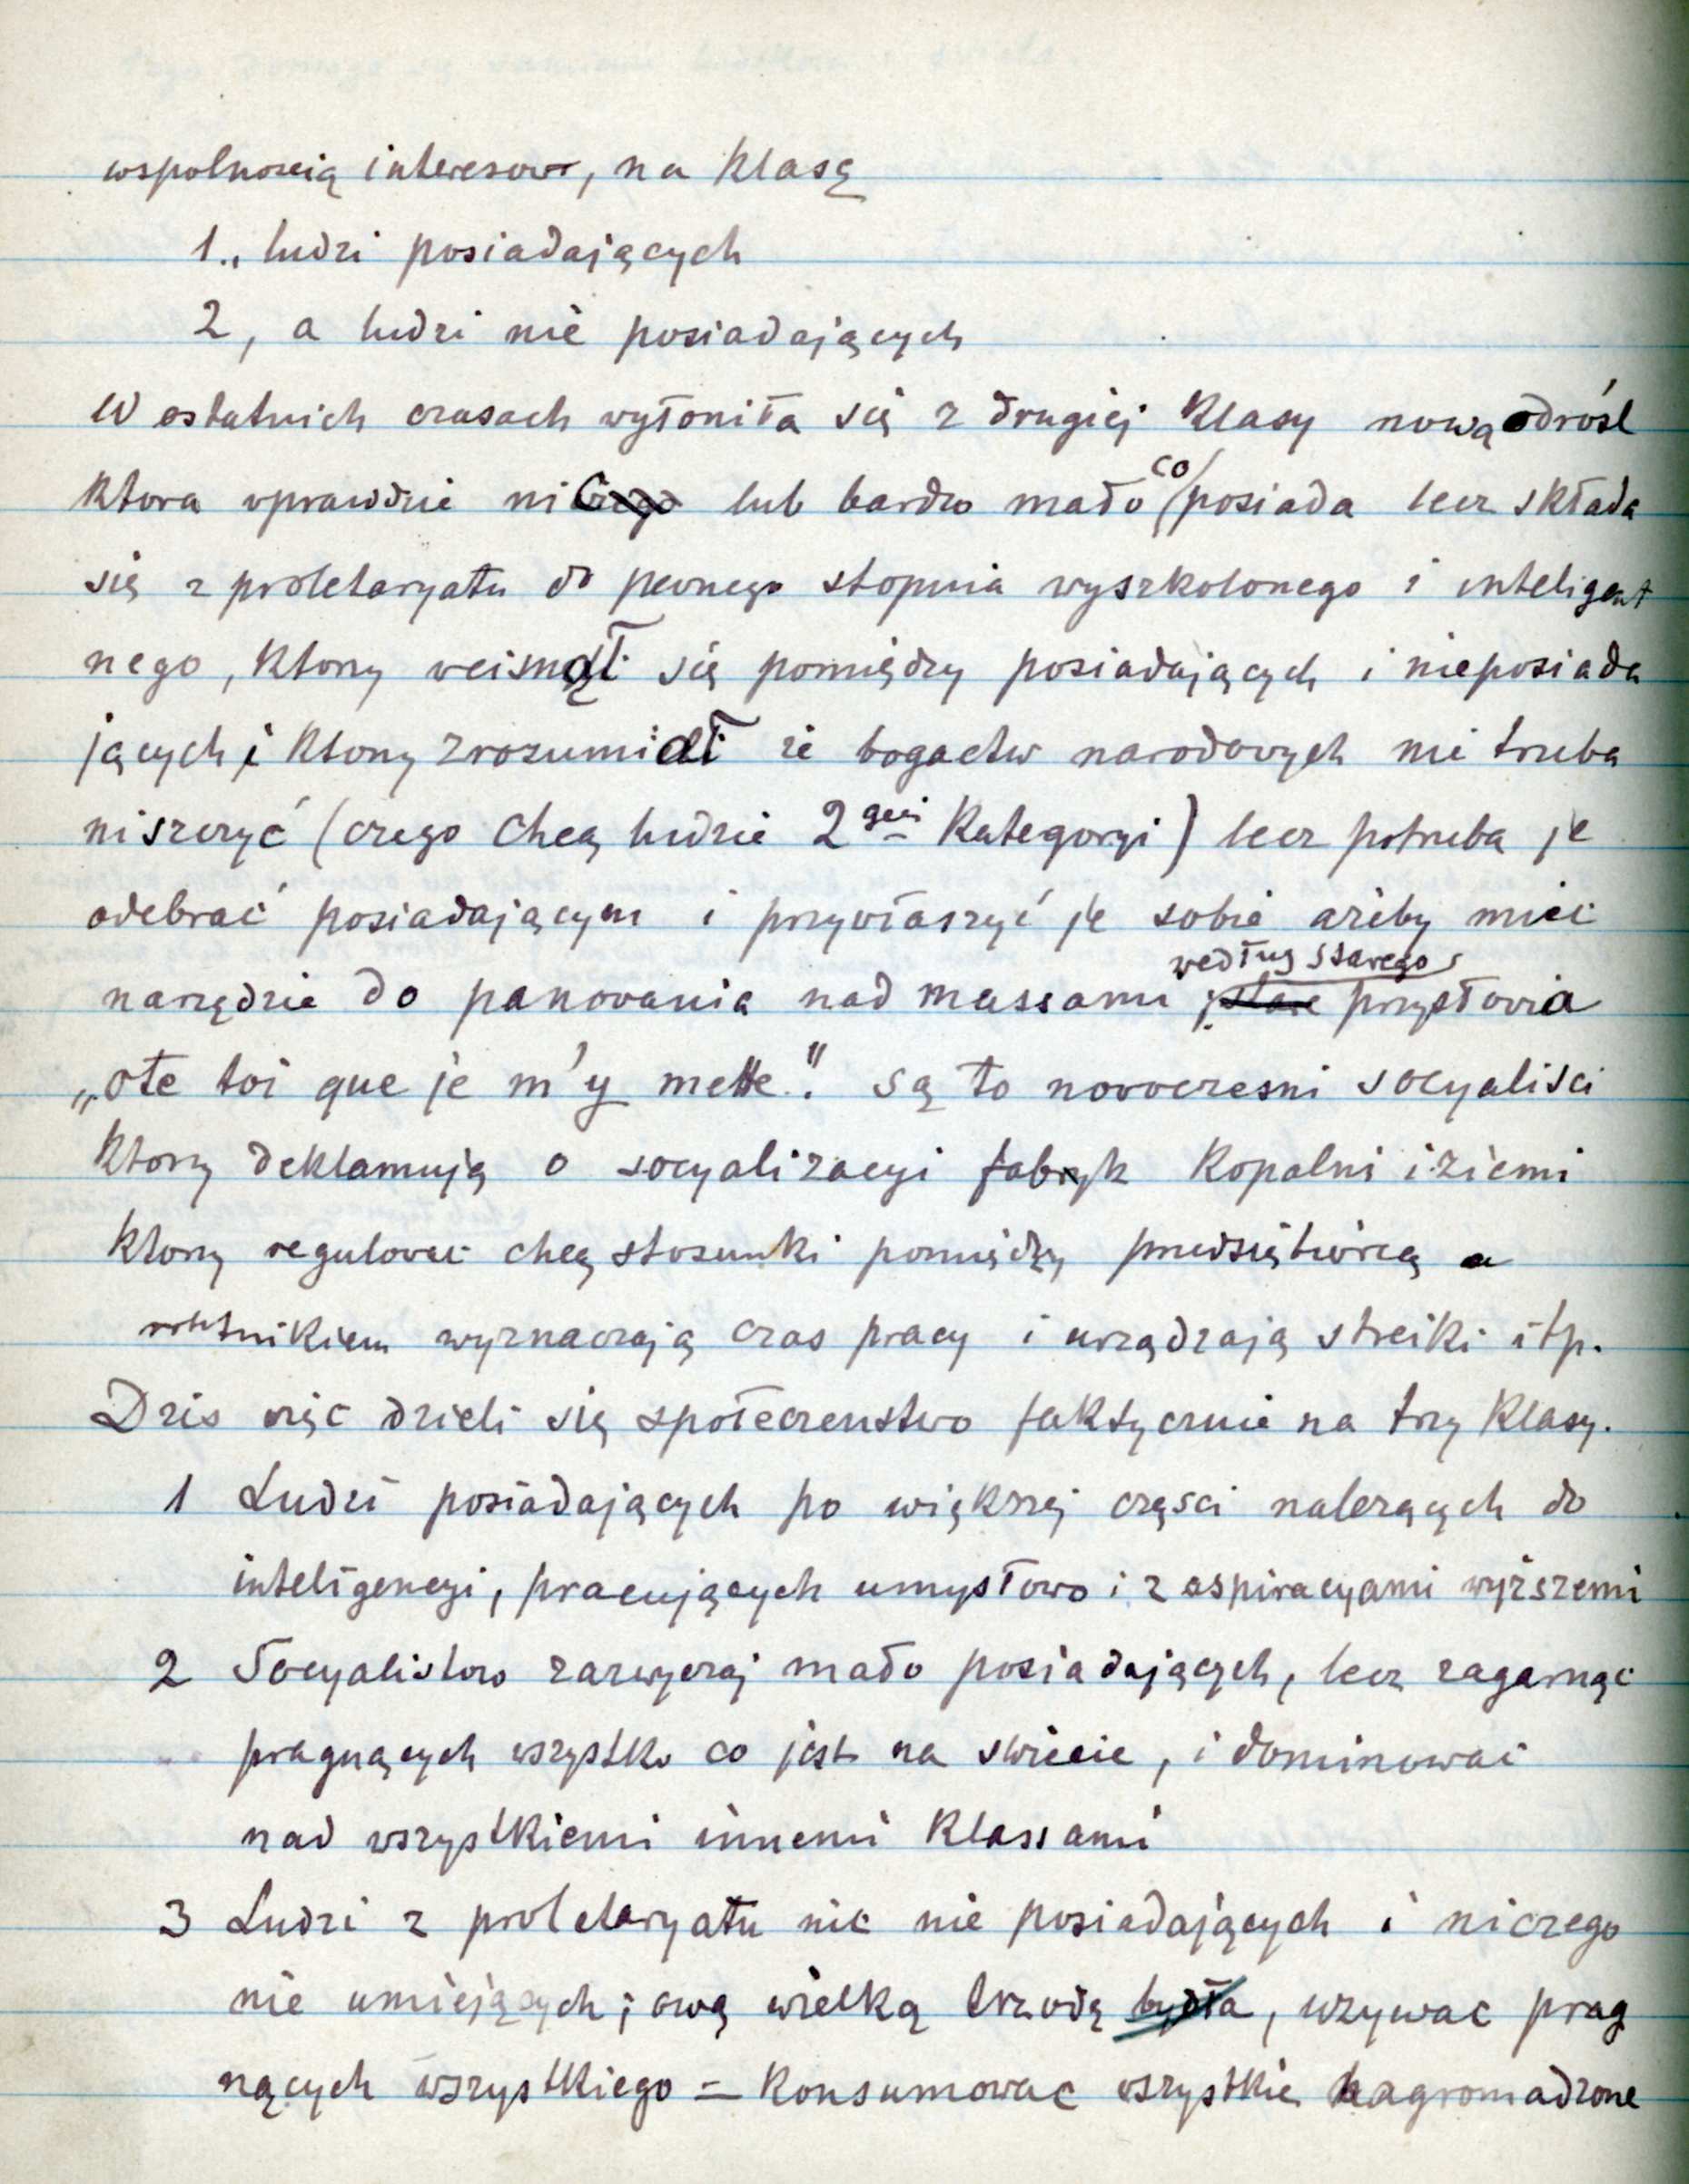 wspolnoscią interesow, na Klasę
1., ludzi posiadających
2, a ludzi nie posiadających
W ostatnich czasach wyłoniła się z drugiej Klasy nowa odrośl
Ktora wprawdzie nic lub bardzo mało co posiada lecz składa
się z proletaryatu do pewnego stopnia wyszkolonego i inteligent
nego, Ktory wcisnął się pomiędzy posiadających i nieposiada
jących i Ktory zrozumiał że bogactw narodowych nie trzeba
niszczyć (czego chcą ludzie 2giej Kategoryi) lecz potrzeba je
odebrać posiadającym i przywłaszyć je sobie ażeby miec
narzędzie do panowania nad massami według starego przysłowia
„ote toi que je m'y mette". są to nowoczesni socyalisci
Ktorzy deklamują o socyalizacyi fabryk Kopalni i ziemi
Ktorzy regulowac chcą stosunki pomiędzy przedsiębiorcą a
robotnikiem wyznaczają czas pracy i urządzają streiki itp.
Dzis więc dzieli się społeczenstwo faktycznie na trzy Klasy.
1 Ludzi posiadających po większej częsci nalezących do
inteligencyi, pracujących umysłowo i z aspiracyami wyższemi
2 Socyalistow zazwyczaj mało posiadających, lecz zagarnąc
pragnących wszystko co jest na swiecie, i dominowac
nad wszystkiemi innemi Klassami
3 Ludzi z proletaryatu nic nie posiadających i niczego
nie umiejących; ową wielką trzodę bydła, uzywac prag
nących wszystkiego = Konsumowac wszystkie nagromadzone